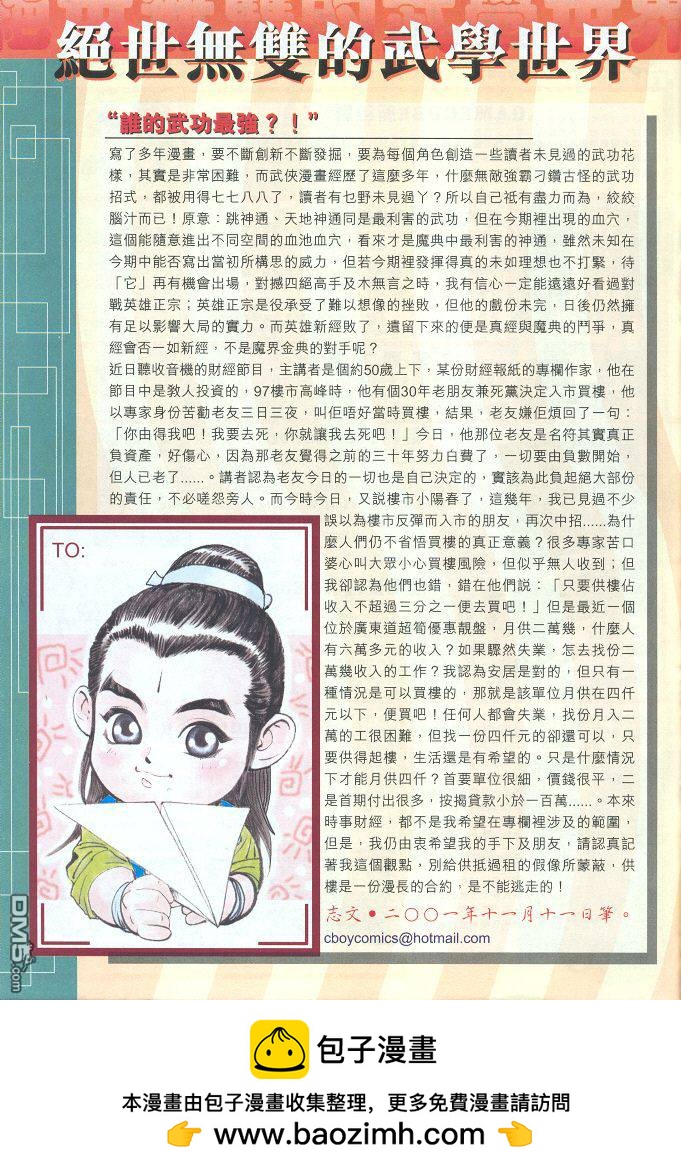 絕世無雙的武學世界
“誰的武功最強？！”
寫了多年漫畫，要不斷創新不斷發掘，要為每個角色創造一些讀者未見過的武功花
樣，其實是非常困難，而武俠漫畫經歷了這麼多年，什麼無敵強霸刁鑽古怪的武功
招式，都被用得七七八八了，讀者有乜野未見過丫？所以自己祗有盡力而為，絞絞
腦汁而已！原意：跳神通、天地神通同是最利害的武功，但在今期裡出現的血穴，
這個能隨意進出不同空間的血池血穴，看來才是魔典中最利害的神通，雖然未知在
今期中能否寫出當初所構思的威力，但若今期裡發揮得真的未如理想也不打緊，待
「它」再有機會出場，對撼四絕高手及木無言之時，我有信心一定能遠遠好看過對
戰英雄正宗；英雄正宗是役承受了難以想像的挫敗，但他的戲份未完，日後仍然擁
有足以影響大局的實力。而英雄新經敗了，遺留下來的便是真經與魔典的鬥爭，真
經會否一如新經，不是魔界金典的對手呢？
近日聽收音機的財經節目，主講者是個約50歲上下，某份財經報紙的專欄作家，他在
節目中是教人投資的，97樓市高峰時，他有個30年老朋友兼死黨決定入市買樓，他
以專家身份苦勸老友三日三夜，叫佢唔好當時買樓，結果，老友嫌佢煩回了一句：
「你由得我吧！我要去死，你就讓我去死吧！」今日，他那位老友是名符其實真正
負資產，好傷心，因為那老友覺得之前的三十年努力白費了，一切要由負數開始，
但人已老了......。講者認為老友今日的一切也是自己決定的，實該為此負起絕大部份
的責任，不必嗟怨旁人。而今時今日，又説樓市小陽春了，這幾年，我已見過不少
誤以為樓市反彈而入市的朋友，再次中招......為什
麼人們仍不省悟買樓的真正意義？很多專家苦口
婆心叫大眾小心買樓風險，但似乎無人收到；但
我卻認為他們也錯，錯在他們說：「只要供樓佔
收入不超過三分之一便去買吧！」但是最近一個
位於廣東道超筍優惠靚盤，月供二萬幾，什麼人
有六萬多元的收入？如果驟然失業，怎去找份二
萬幾收入的工作？我認為安居是對的，但只有一
種情況是可以買樓的，那就是該單位月供在四仟
元以下，便買吧！任何人都會失業，找份月入二
萬的工很困難，但找一份四仟元的卻還可以，只
要供得起樓，生活還是有希望的。只是什麼情況
下才能月供四仟？首要單位很細，價錢很平，二
是首期付出很多，按揭貸款小於一百萬......。本來
時事財經，都不是我希望在專欄裡涉及的範圍，
但是，我仍由衷希望我的手下及朋友，請認真記
著我這個觀點，別給供抵過租的假像所蒙蔽，供
樓是一份漫長的合約，是不能逃走的！
志文•二〇〇一年十一月十一日筆。
cboycomics@hotmail.com
TO:
DM5.com
包子漫畫
本漫畫由包子漫畫收集整理，更多免費漫畫請訪問
www.baozimh.com